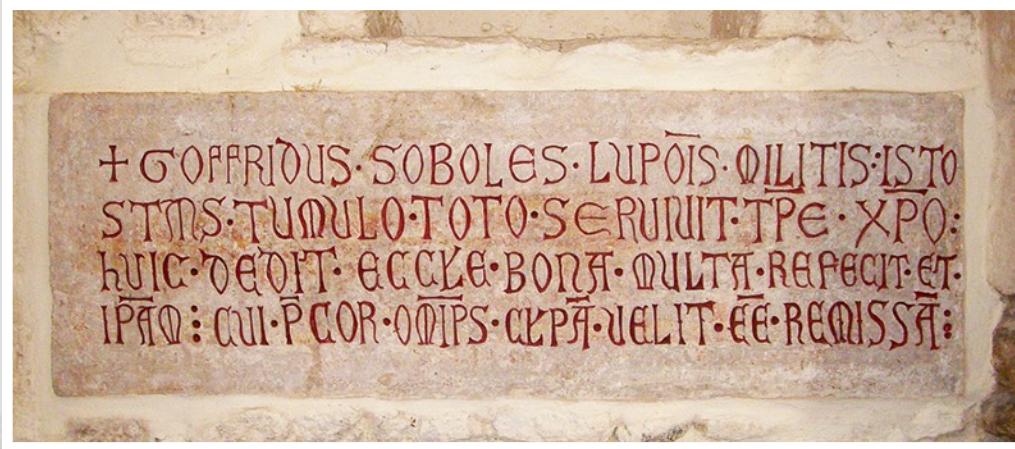 + GOFFRIDUS · SOBOLES · LUPOĪS · MILITIS : ISTO
STM̄S · TUMULO · TOTO · SERUIUIT · TP̄E · XP̄O :
HUIC · DEDIT · ECCƚE · BONA · MULTA · REFECIT · ET ·
IPĀM ⁝ CUI · P̄ COR · OMĪPS · CƚPĀ · UELIT · ĒĒ · REMISSĀ ⁝